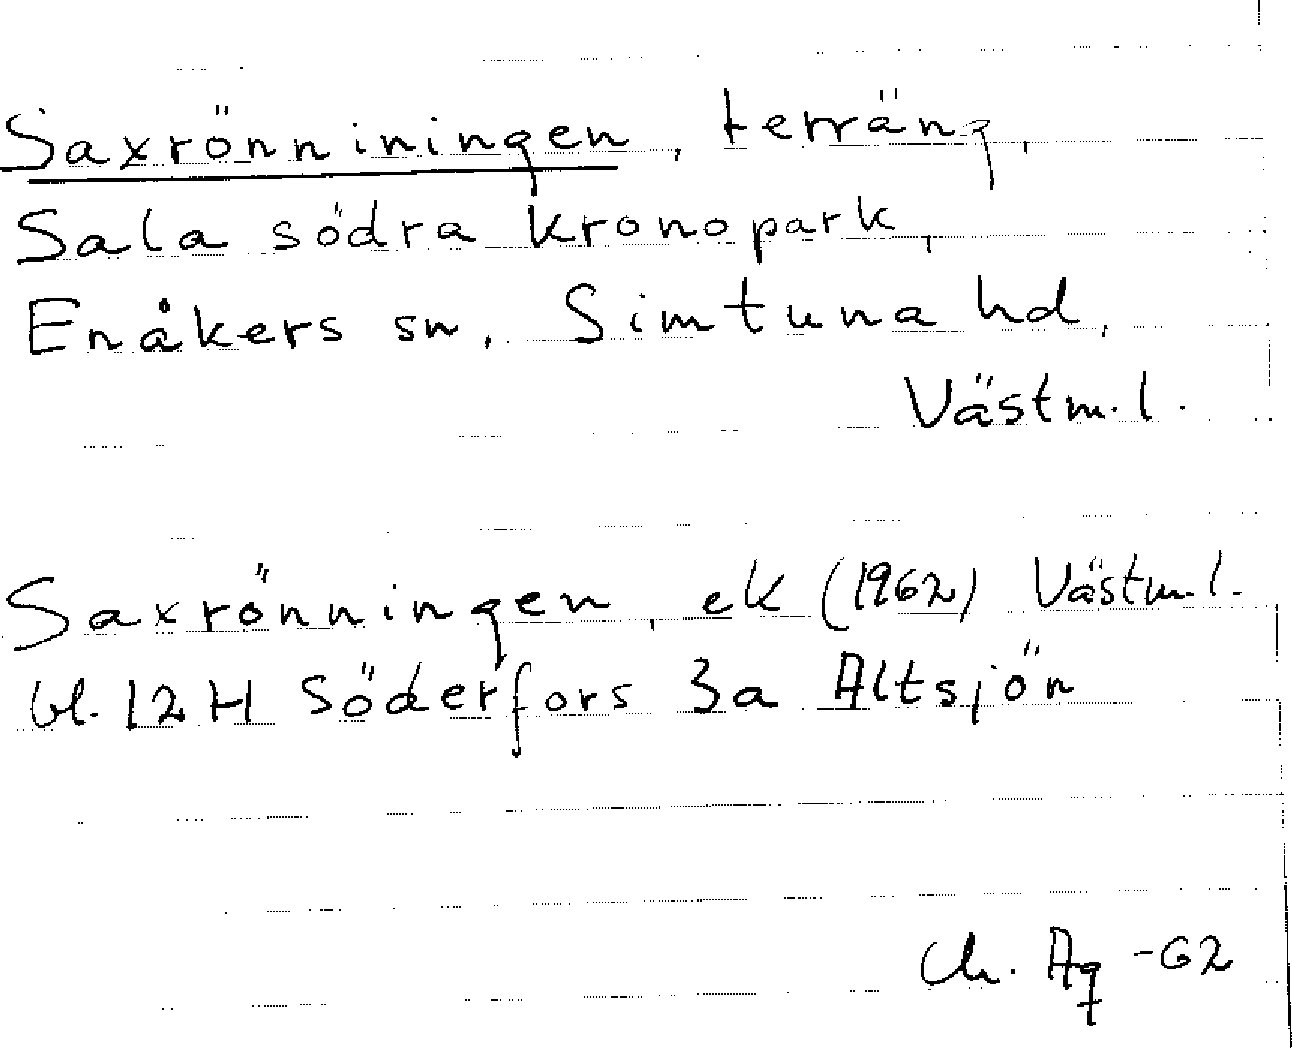 Saxrönniningen, terräng,
Sala södra kronopark,
Enåkers sn, Simtuna hd,
Västm.l.
Saxrönningen, ek (1962) Västm.l.
bl. 12H Söderfors 3a Altsjön
Ch. Ag -62